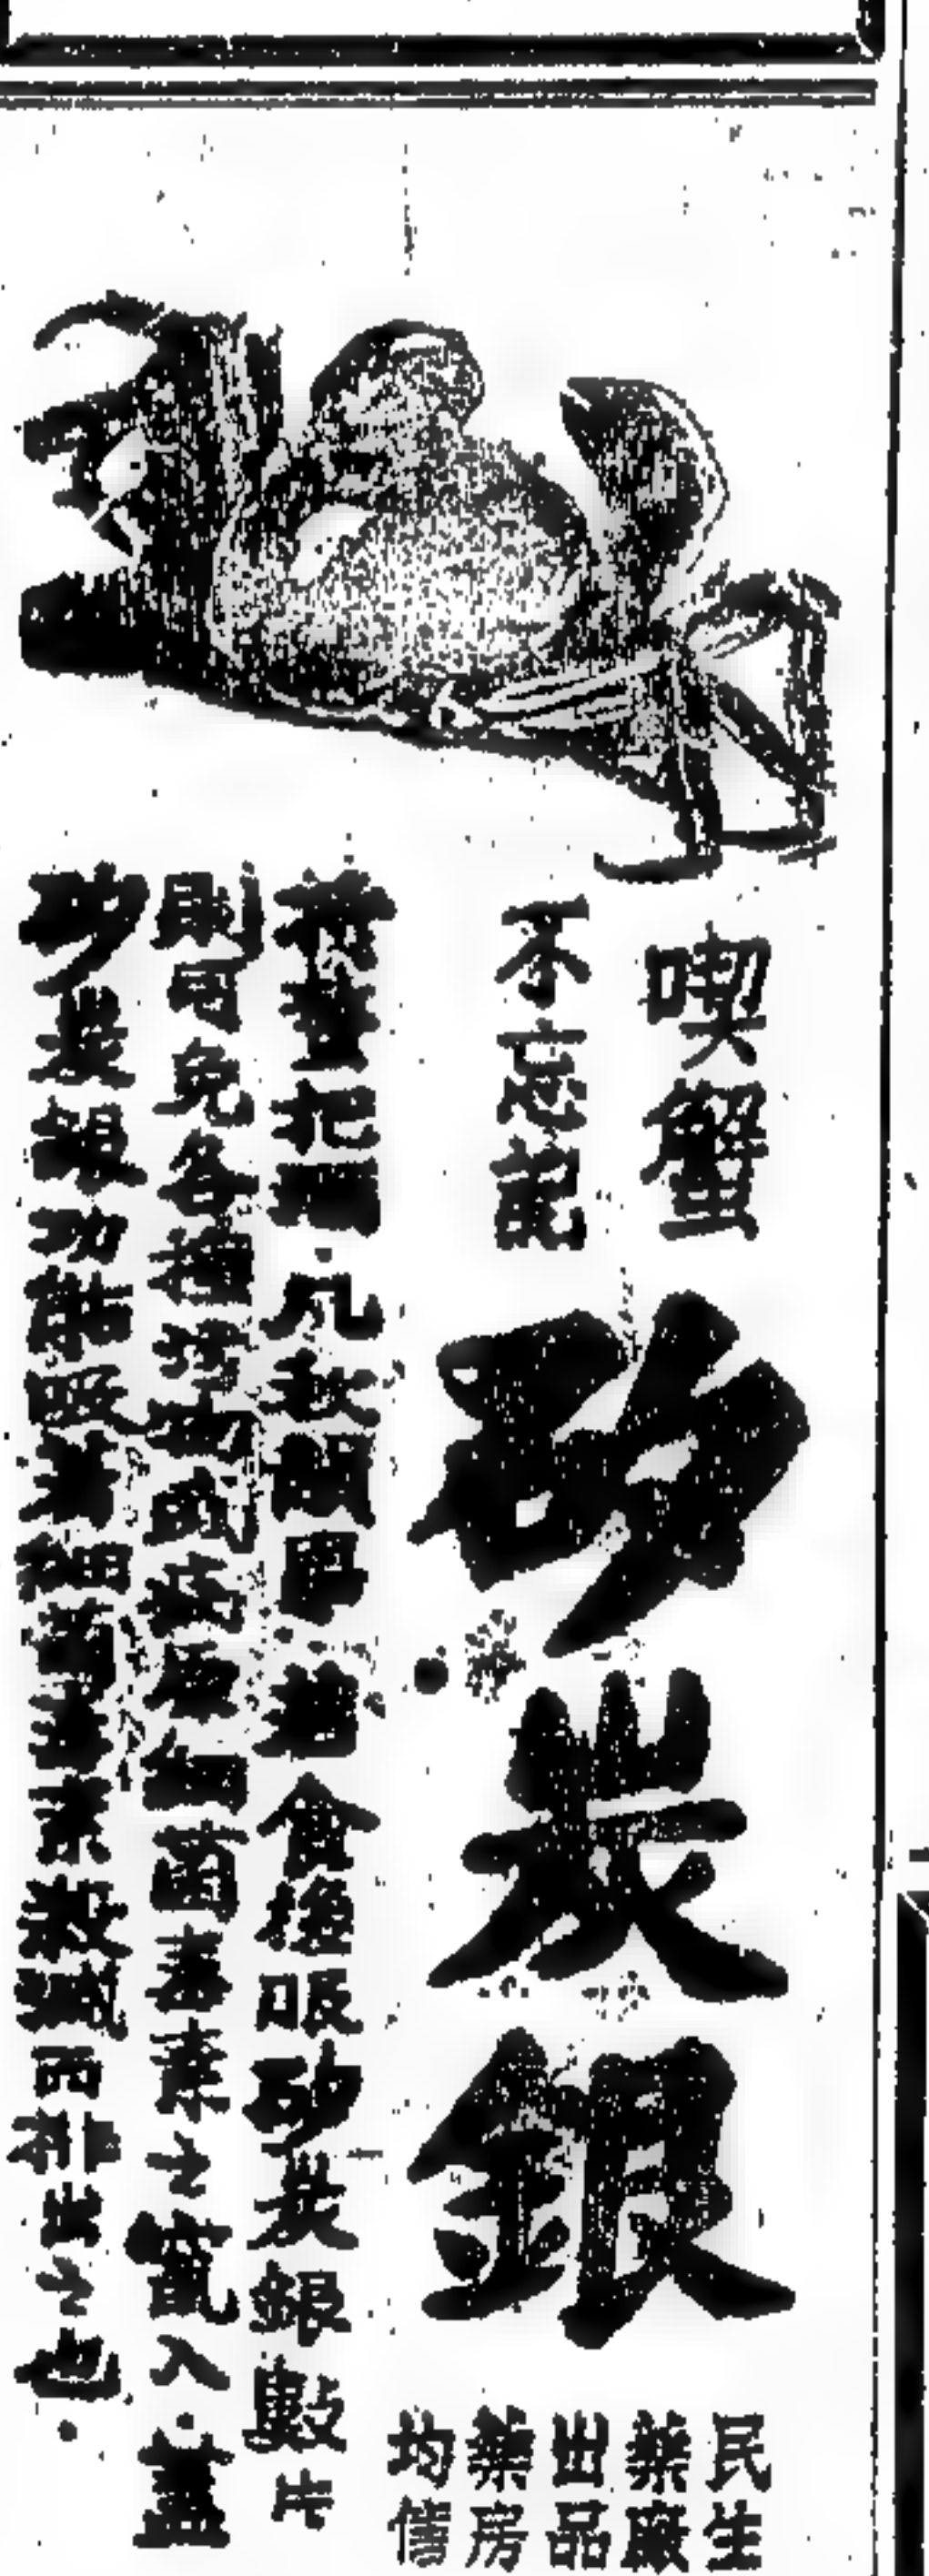 喫蟹
不忘記
矽炭銀
民生
藥廠
出品
藥房
均售
螯把酒·凡食後服矽炭銀數片
則可免各種細菌毒素之竄入·蓋
矽炭銀功能吸着細菌毒素殺滅而排出之也·